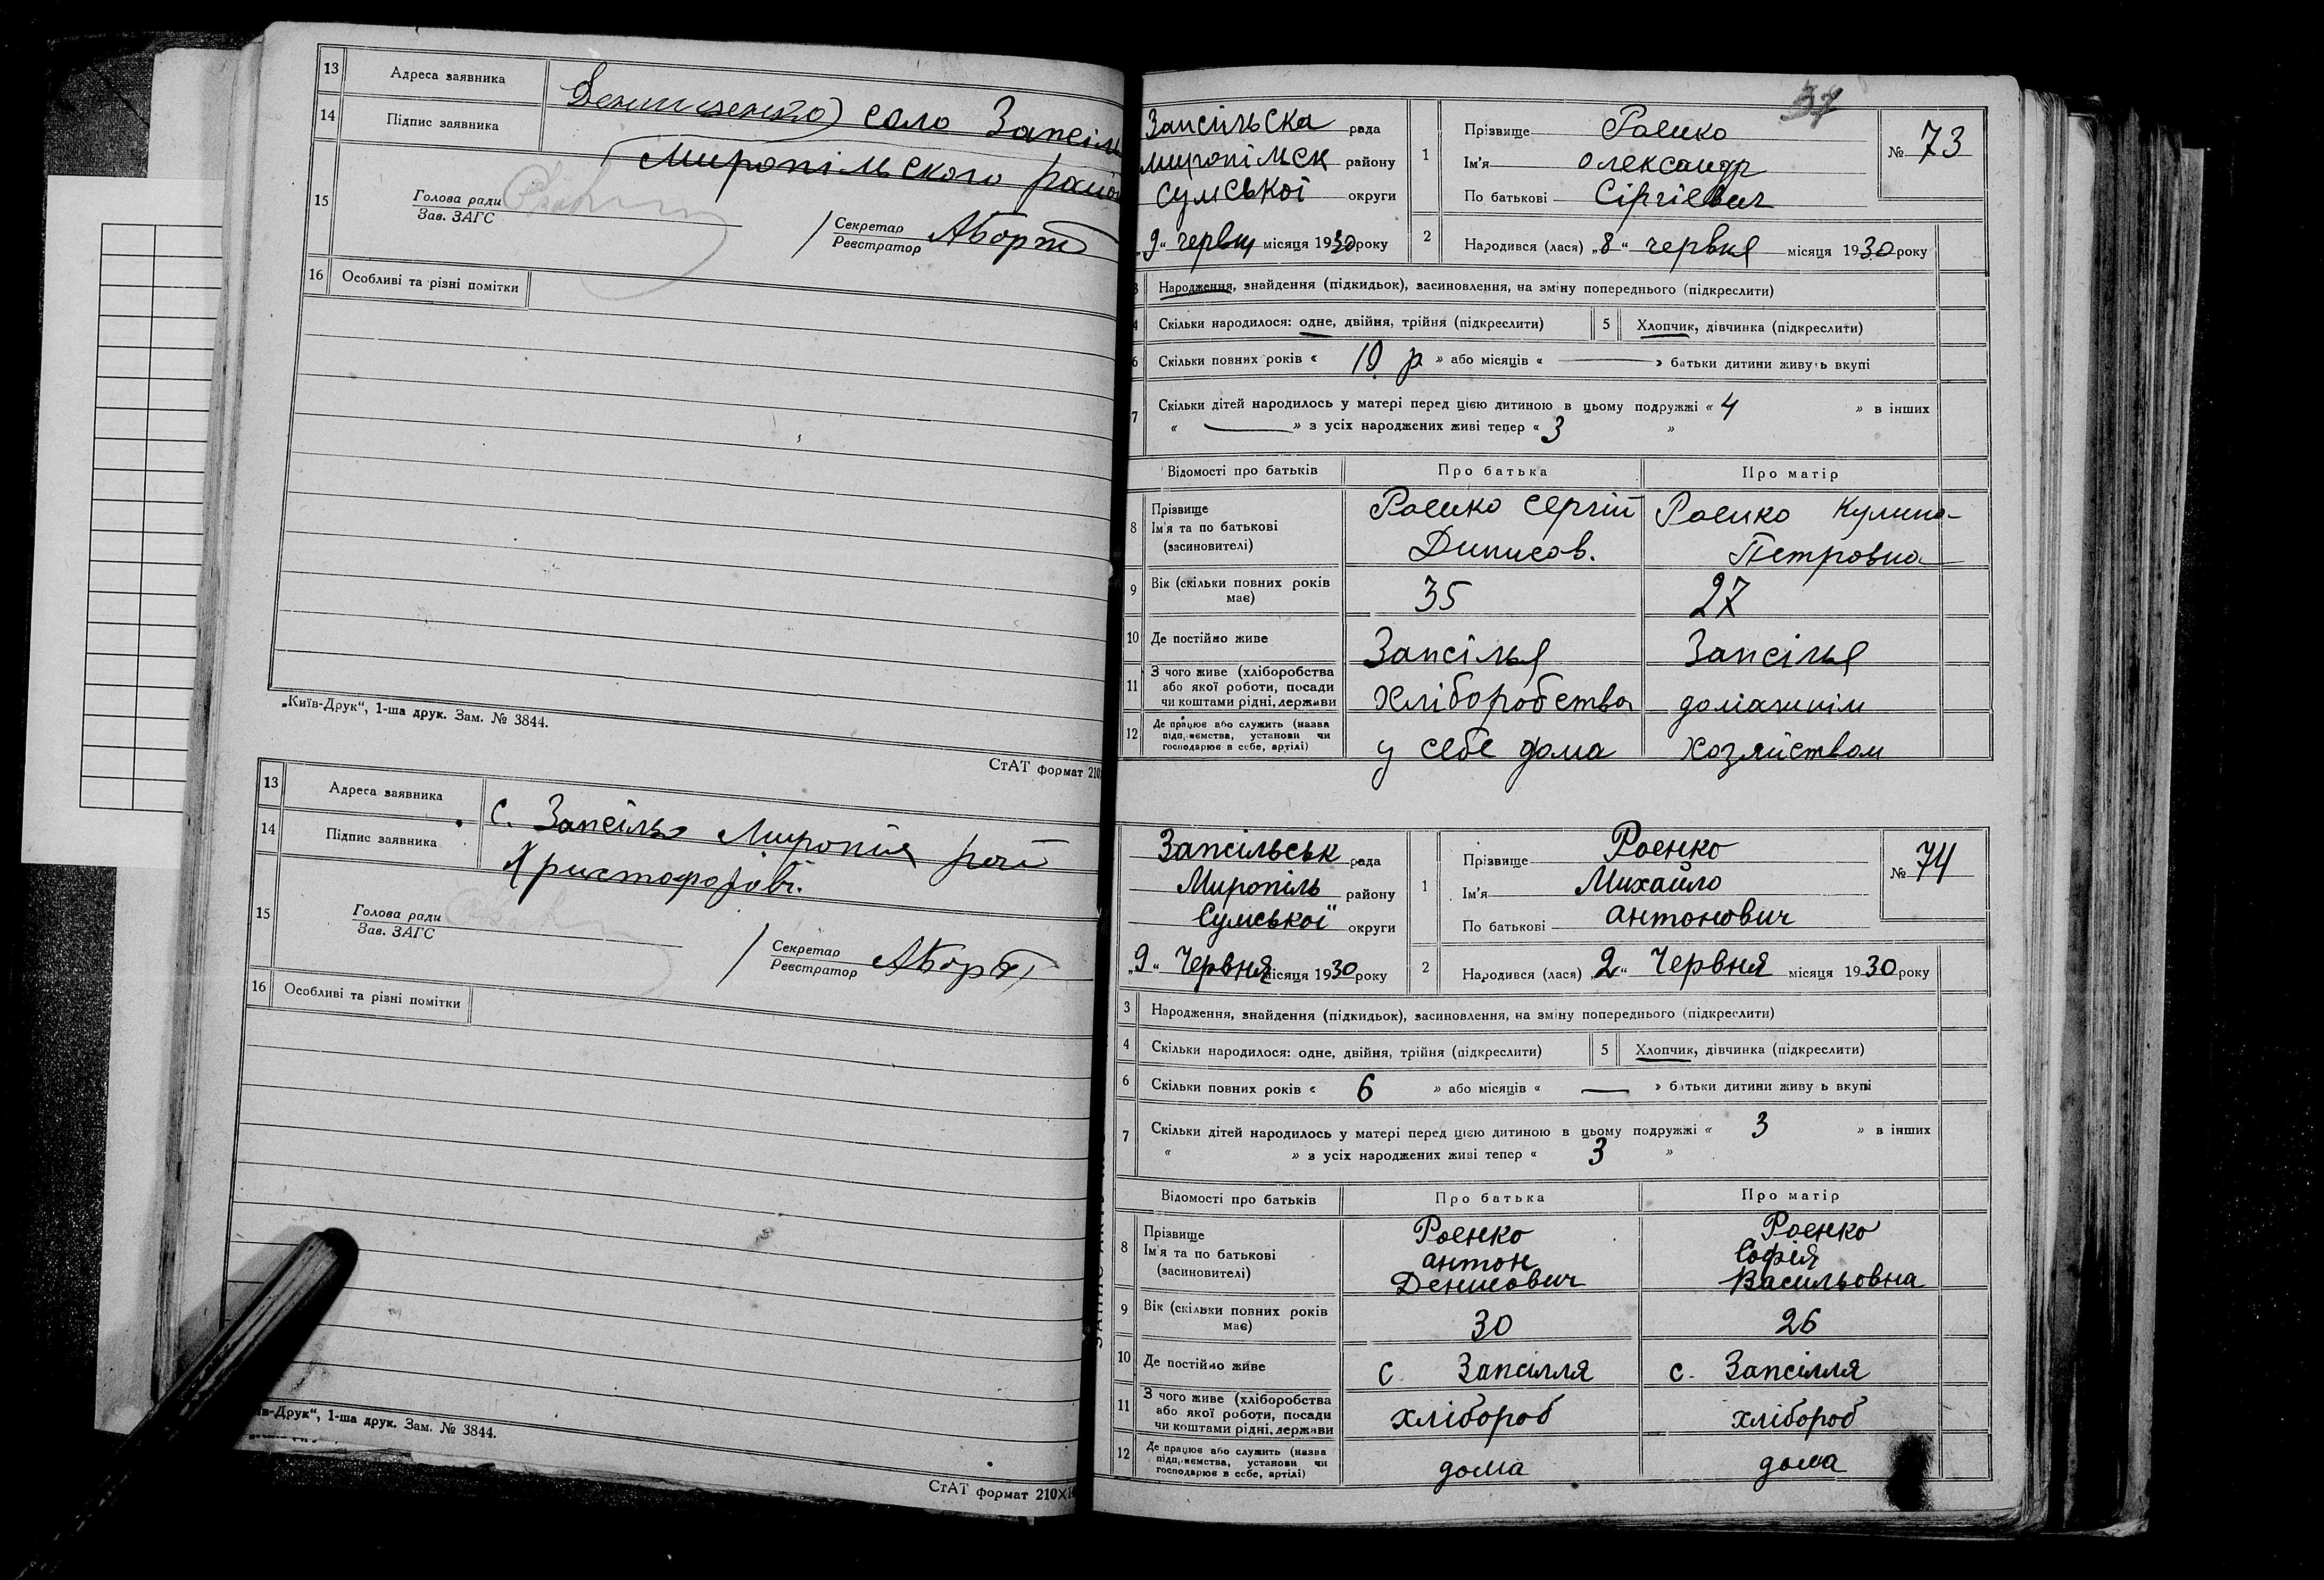 13 Адреса заявника
Денисенко село Запсіль
14 Підпис заявника
Миропільского райо
15 Голова ради
Зав. ЗАГС
Секретар
Реєстратор АБорт
16 Особливі та різні помітки
„Київ-Друк“, 1-ша друк. Зам. № 3844.
СтАТ формат 210
13 Адреса заявника
с. Запсілье Миропіл рай
14 Підпис заявника
Христофорові.
15 Голова ради
Зав. ЗАГС
Секретар
Реєстратор АБорт
16 Особливі та різні помітки
їв-Друк“, 1-ша друк. Зам. № 3844.
СтАТ формат 210×1
37
Запсільска рада
миропільск району
сумської округи
„9“ червня місяця 1930 року
1 Прізвище Роенко
Ім'я олександр
По батькові Сіргіевич
№ 73
2 Народився (лася) „8“ червня місяця 1930 року
3 Народження, знайдення (підкидьок), засиновлення, на зміну попереднього (підкреслити)
4 Скільки народилося: одне, двійня, трійня (підкреслити) 5 Хлопчик, дівчинка (підкреслити)
6 Скільки повних років « 10 р » або місяців « — » батьки дитини живуть вкупі
7 Скільки дітей народилось у матері перед цією дитиною в цьому подружжі « 4 » в інших
« — » з усіх народжених живі тепер « 3 »
Відомості про батьків Про батька Про матір
8 Прізвище
Ім'я та по батькові
(засиновителі)
Роенко Сергій
Динисов.
Роенко Кулина
Петровна
9 Вік (скільки повних років має) 35 27
10 Де постійно живе Запсілья Запсілья
11 З чого живе (хліборобства
або якої роботи, посади
чи коштами рідні, держави
хліборобства домашнім
12 Де працює або служить (назва
підприємства, установи чи
господарює в себе, артілі)
у себе дома хозяйством
Запсільськ рада
Миропіль району
Сумської округи
„9“ Червня місяця 1930 року
1 Прізвище Роенко
Ім'я Михайло
По батькові антонович
№ 74
2 Народився (лася) „2“ Червня місяця 1930 року
3 Народження, знайдення (підкидьок), засиновлення, на зміну попереднього (підкреслити)
4 Скільки народилося: одне, двійня, трійня (підкреслити) 5 Хлопчик, дівчинка (підкреслити)
6 Скільки повних років « 6 » або місяців « — » батьки дитини живу ь вкупі
7 Скільки дітей народилось у матері перед цією дитиною в цьому подружжі « 3 » в інших
« » з усіх народжених живі тепер « 3 »
Відомості про батьків Про батька Про матір
8 Прізвище
Ім'я та по батькові
(засиновителі)
Роенко
антон
Денисович
Роенко
Софія
Васильовна
9 Вік (скільки повних років має) 30 26
10 Де постійно живе с. Запсілля с. Запсілля
11 З чого живе (хліборобства
або якої роботи, посади
чи коштами рідні, держави
хлібороб хлібороб
12 Де працює або служить (назва
підприємства, установи чи
господарює в себе, артілі)
дома дома